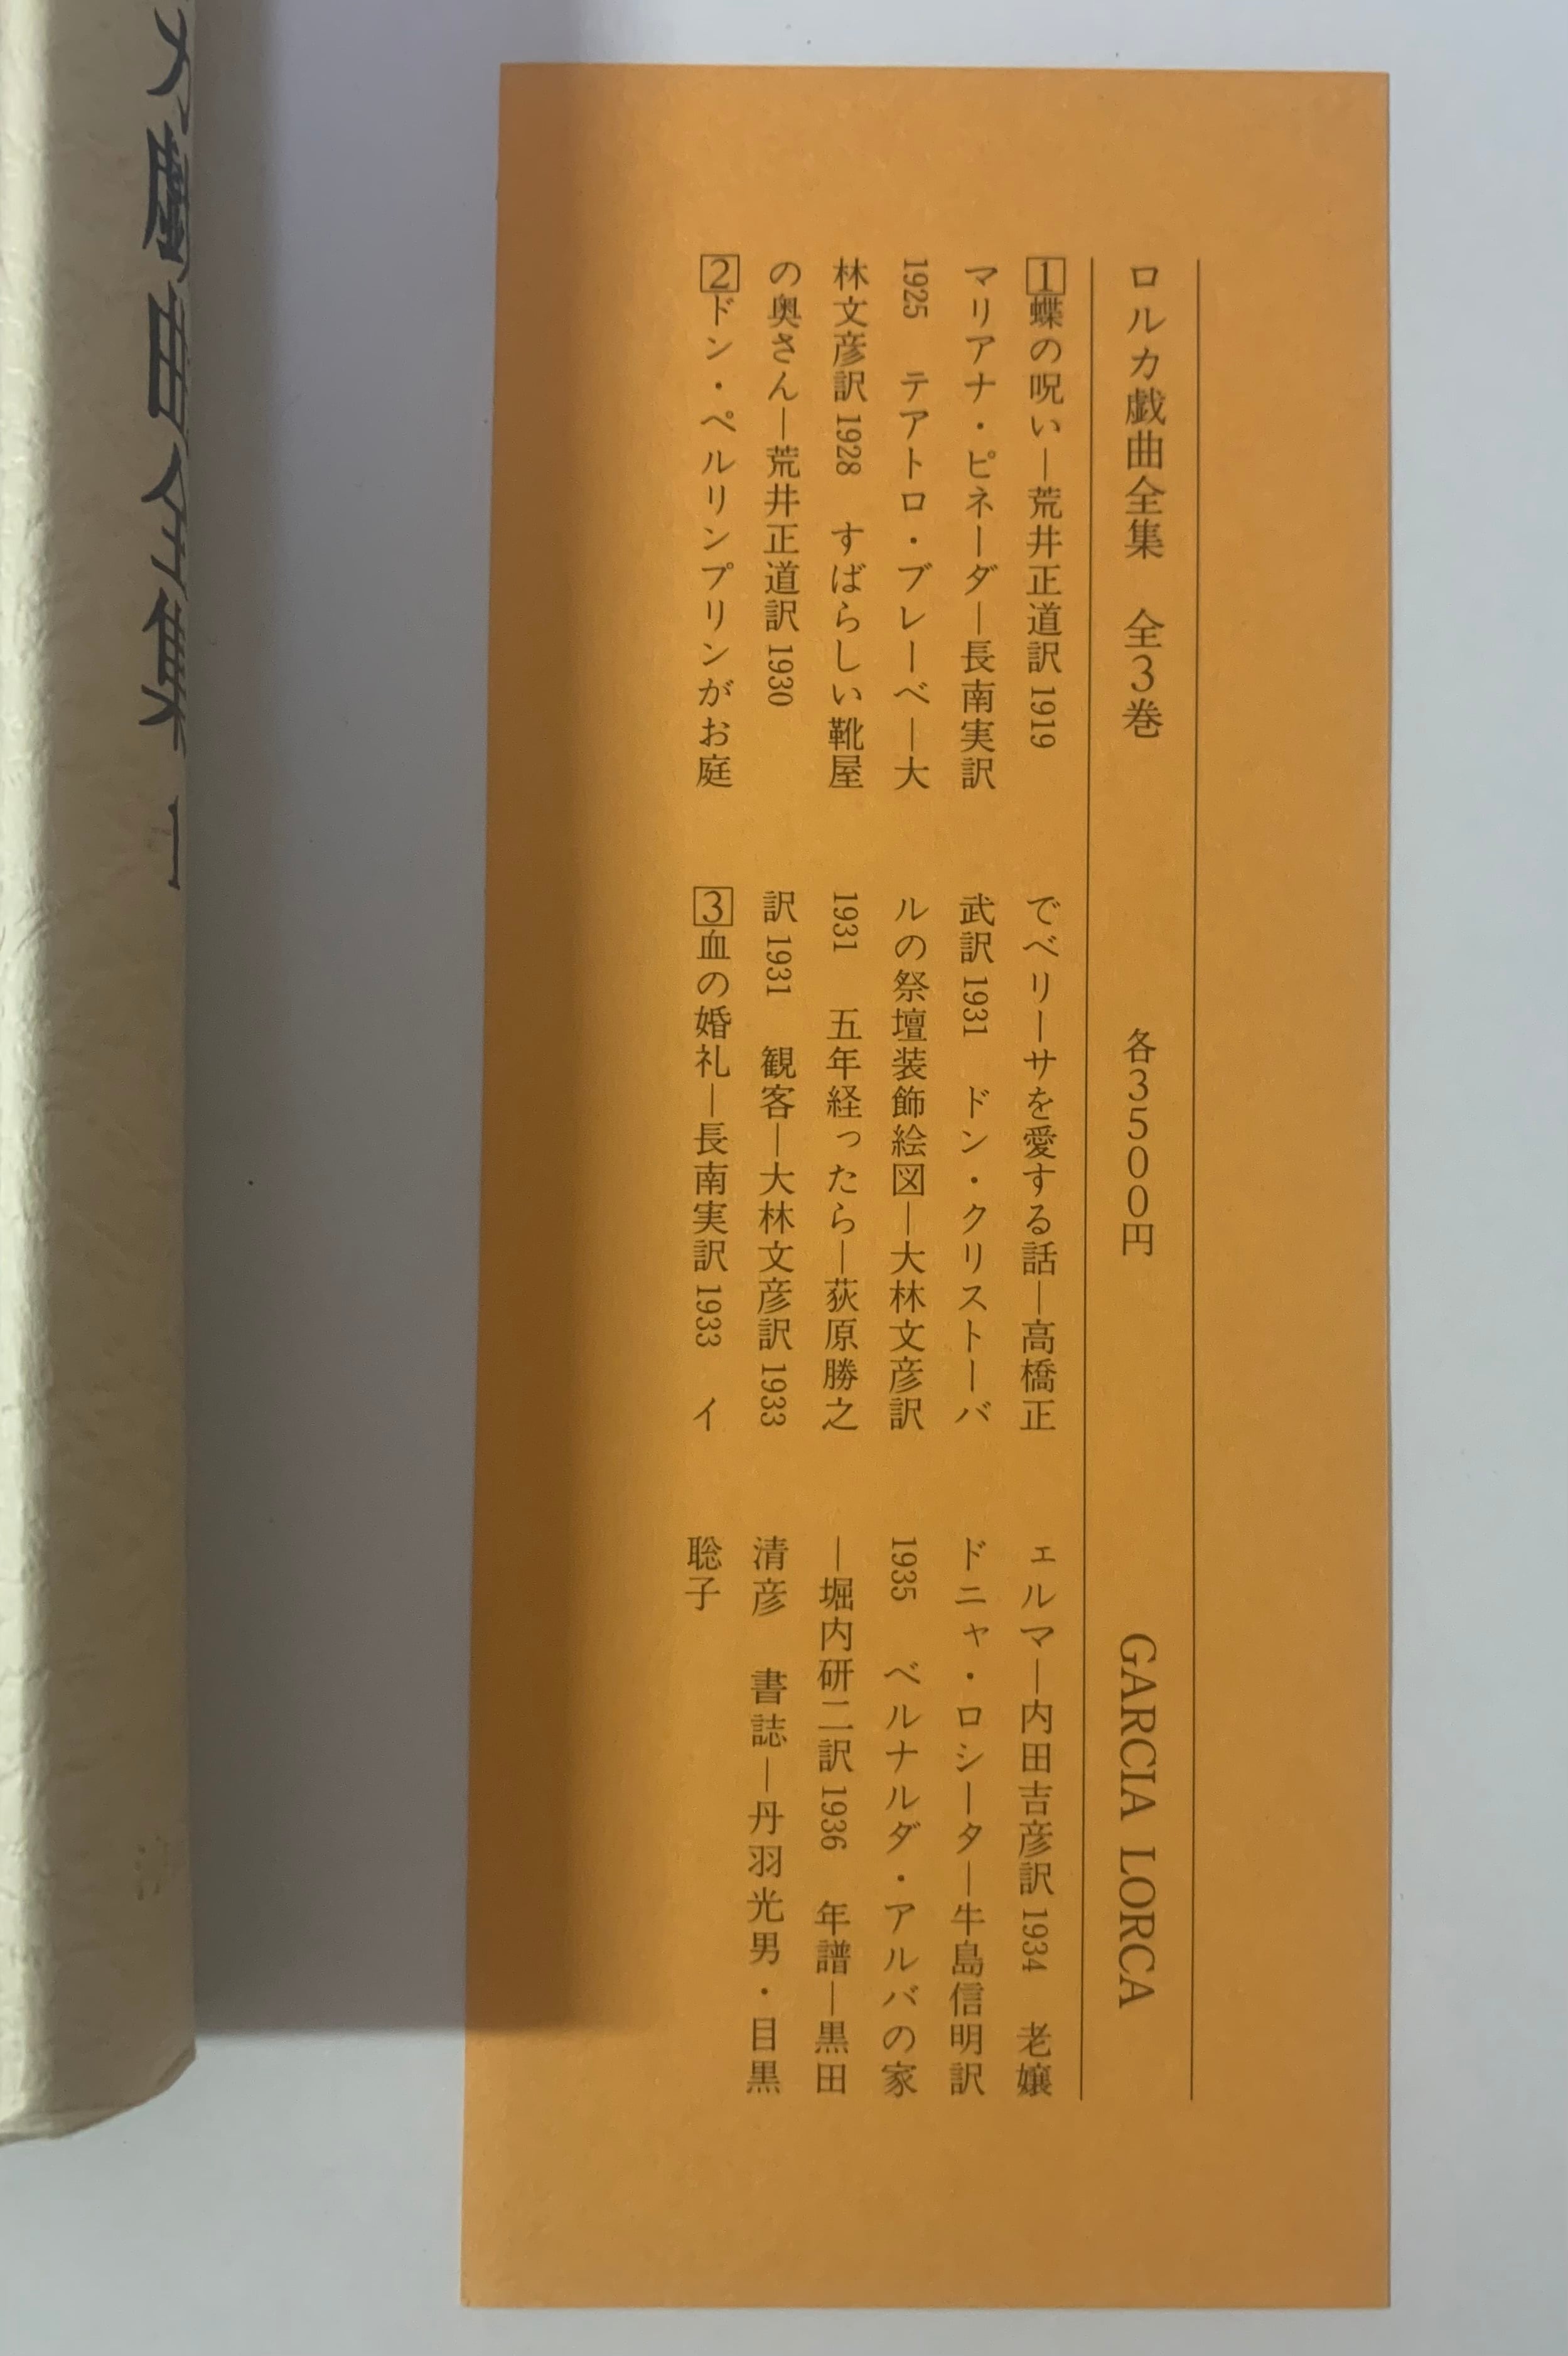 ロルカ戯曲全集　全3巻　各3500円　GARCIA LORCA
1 蝶の呪い―荒井正道訳 1919
マリアナ・ピネーダ―長南実訳
1925　テアトロ・ブレーベ―大
林文彦訳 1928　すばらしい靴屋
の奥さん―荒井正道訳 1930
2 ドン・ペルリンプリンがお庭
でベリーサを愛する話―高橋正
武訳 1931　ドン・クリストーバ
ルの祭壇装飾絵図―大林文彦訳
1931　五年経ったら―荻原勝之
訳 1931　観客―大林文彦訳 1933
3 血の婚礼―長南実訳 1933　イ
ェルマ―内田吉彦訳 1934　老嬢
ドニャ・ロシータ―牛島信明訳
1935　ベルナルダ・アルバの家
―堀内研二訳 1936　年譜―黒田
清彦　書誌―丹羽光男・目黒
聡子
戯曲全集 1